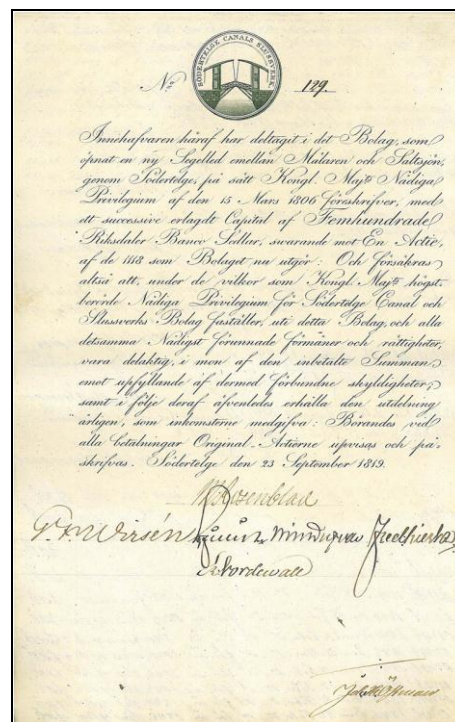 SÖDERTELGE CANALS SLUSSVERK.
No 129.
Innehafvaren häraf har deltagit i det Bolag, som
öpnat en ny Segelled emellan Mälaren och Saltsjön,
genom Södertelge, på sätt Kongl. Majts Nådiga
Privilegium af den 15 Mars 1806 föreskrifver, med
ett successive erlagdt Capital af Femhundrade
Riksdaler Banco Sedlar, swarande mot En Actie,
af de 1118 som Bolaget nu utgör: Och försäkras
altså att, under de vilkor som Kongl. Majts högst-
berörde Nådiga Privilegium för Södertelge Canal och
Slussverks-Bolag faställer, uti detta Bolag, och alla
detsamma Nådigst förunnade förmåner och rättigheter,
vara delaktig, i mon af den inbetalte Summan,
emot uppfyllande af dermed förbundne skyldigheter;
samt i följe deraf äfvenledes erhålla den utdelning
årligen, som inkomsterne medgifva: Börandes vid
alla betalningar Original-Actierne upvisas och på-
skrifvas. Södertelge den 23 September 1819.
Rosenblad
Wirsén
Nordewall